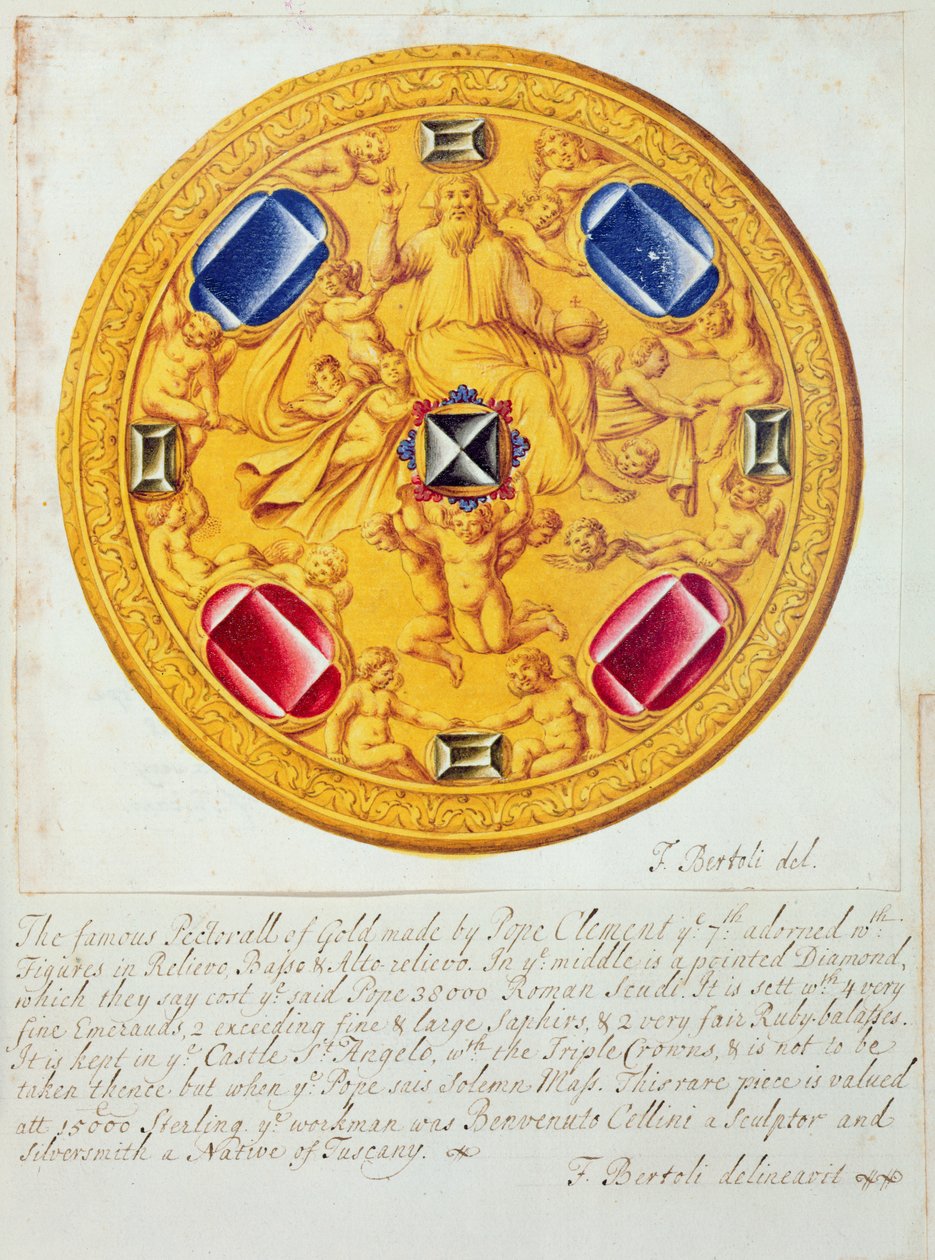 F. Bertoli del.
The famous Pectorall of Gold made by Pope Clement yᵉ 7ᵗʰ adorned wᵗʰ
Figures in Relievo, Basso & Alto-relievo. In yᵉ middle is a pointed Diamond,
which they say cost yᵉ said Pope 38000 Roman Scudi. It is sett wᵗʰ 4 very
fine Emerauds, 2 exceeding fine & large Saphirs, & 2 very fair Ruby-balasses.
It is kept in yᵉ Castle Sᵗ Angelo, wᵗʰ the Triple Crowns, & is not to be
taken thence but when yᵉ Pope sais Solemn Mass. This rare piece is valued
att 15000 Sterling. yᵉ workman was Benvenuto Cellini a Sculptor and
Silversmith a Native of Tuscany.
F. Bertoli delineavit